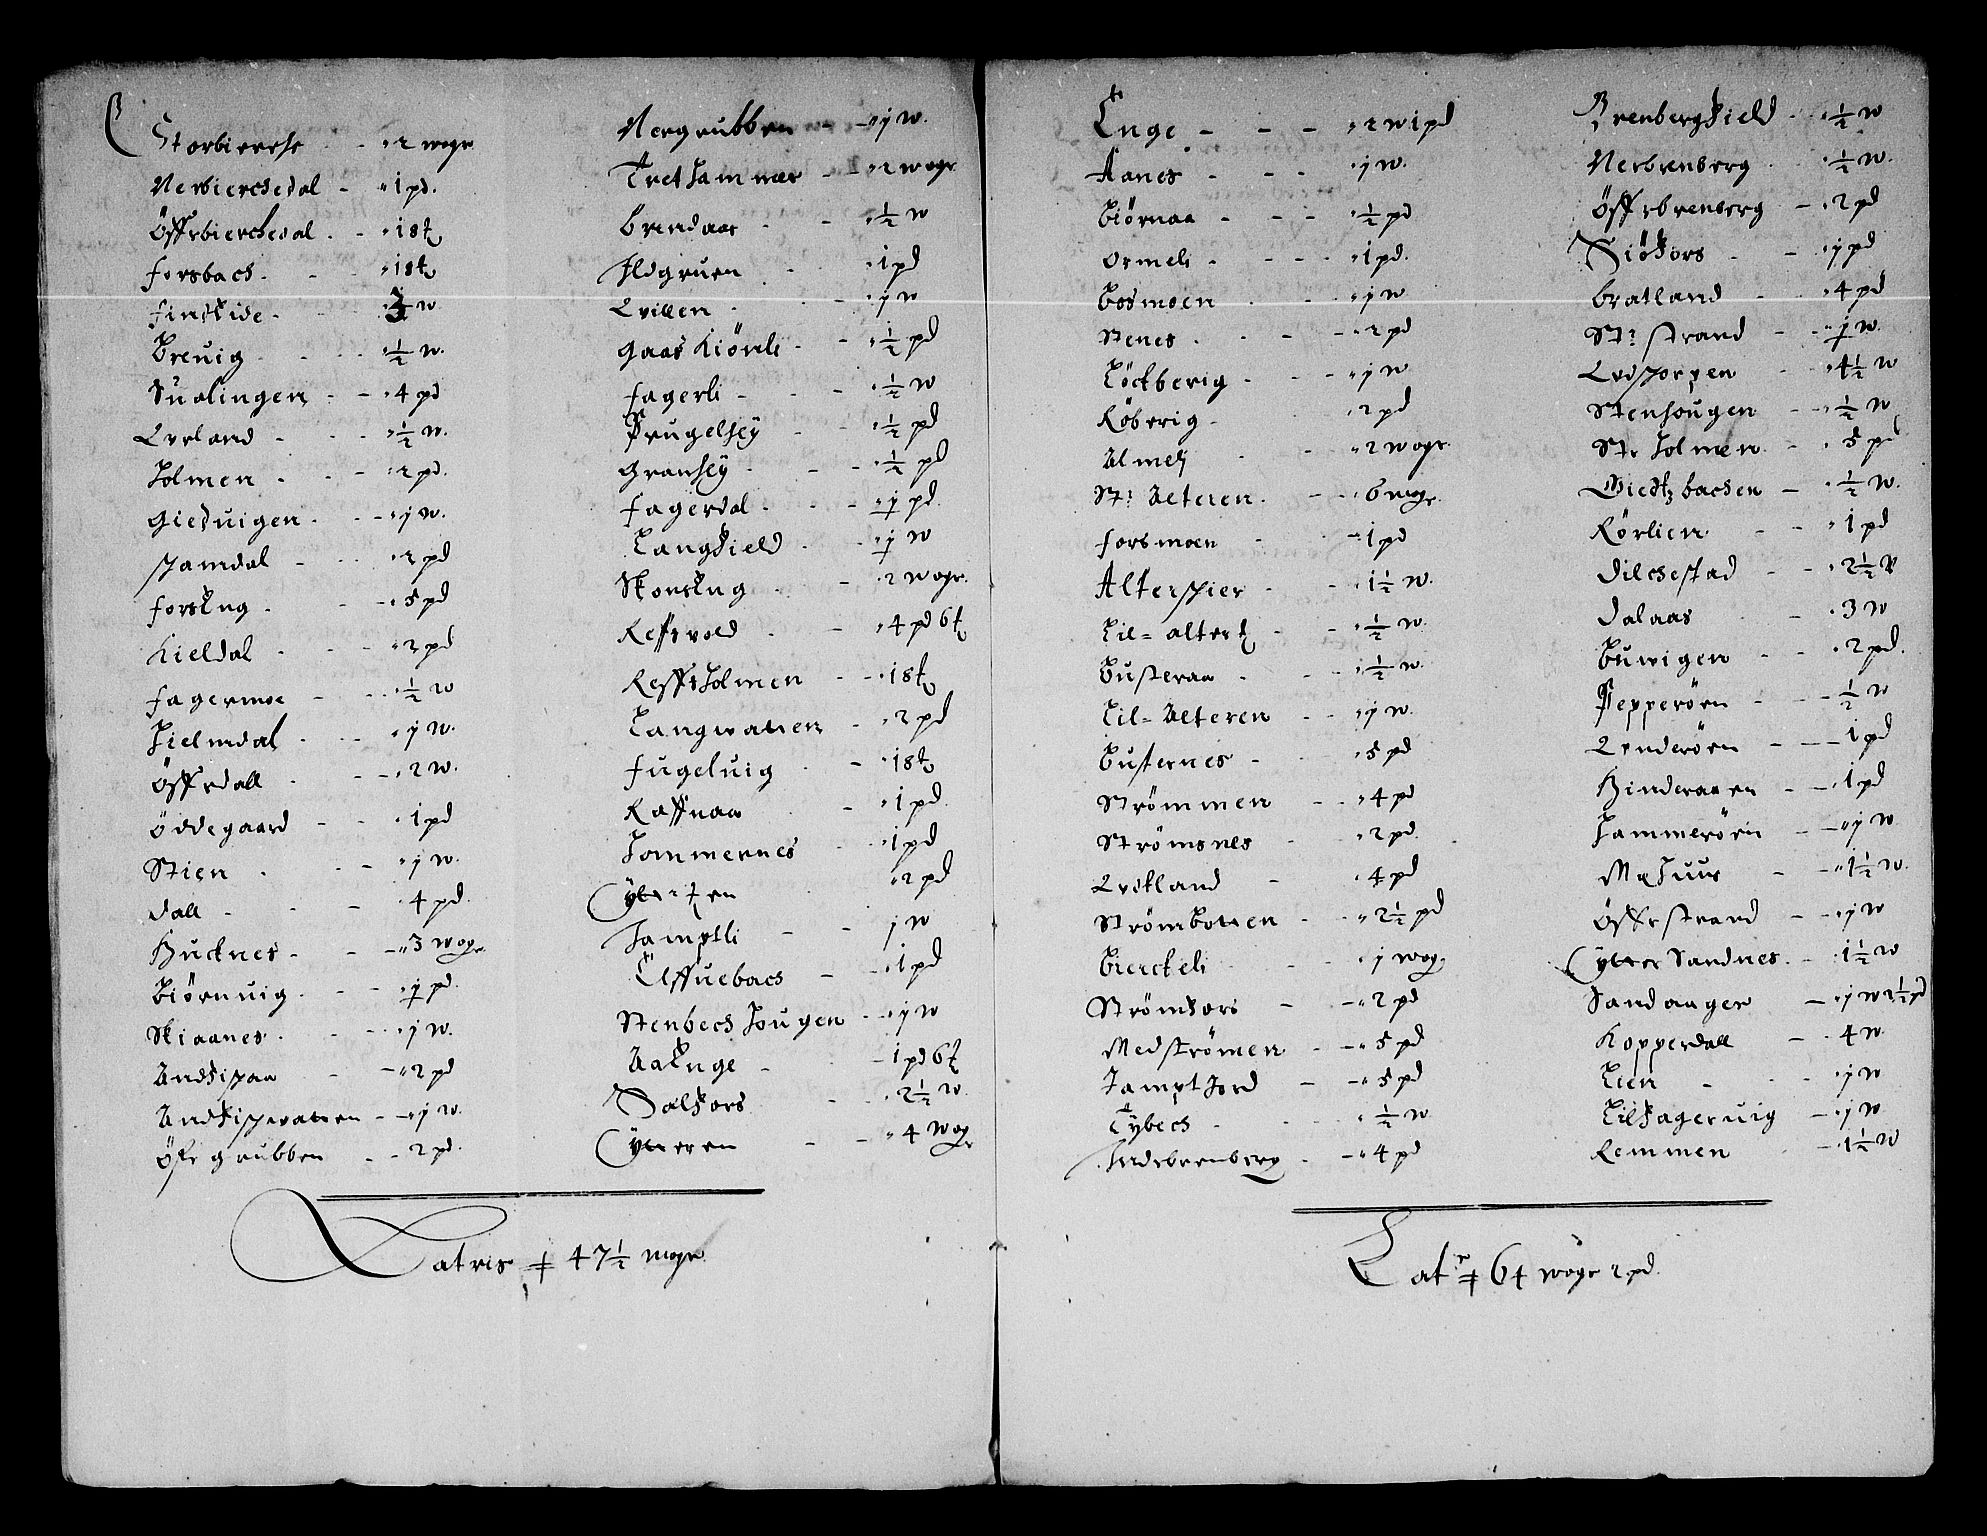 Storbierche - - 2 woge
Nerbierchedal - 1 pd.
Öffrebierchedal - - 18 ℔
forsbach - - 18 ℔
finskide - - w.
Breuig - - ½ w.
Sualingen - - 4 pd
Lvrland - - ½ w.
Holmen - - 2 pd.
Gieduigen - - j w.
spamdal - - 2 pd
forslug - - 5 pd
Kieldal - - 2 pd
fagermoe - - ½ w
Hielmdal - - j w.
Öffredall - - 2 w.
Öddegaard - - 1 pd
Stien - - j w.
Dall - - 4 pd.
Hucknes - - 3 woge
Biörnuig - - j pd.
Skiaanes - - j w.
Andfispaa - - 2 pd
Andfiskevatten - - j w.
Öfre grubben - - 2 pd.
Nergrubben - - j w.
Trethammer - 2 woge
brendaas - - ½ w
Ildgruen - - 1 pd
Lvillen - - j w
Gaas kiönli - - ½ pd
fagerli - - ½ w
Prugelhey - - ½ pd
Granhey - - ½ pd
fagerdal - - j pd.
Langfield - - j w
Skonslug - - 2 woge.
Reffsvold - - 4 pd 6 ℔
Reffsholmen - - 18 ℔
Langvatten - 2 pd
fugeluig - - 18 ℔
Raffnaa - 1 pd
Hammernes - 1 pd
Ytteren 2 pd
Jamptli - - j w
Ölffuebach - - 1 pd
Stenbech Hougen - - j w
Aa Enge - 1 pd 6 ℔
Dalsfors - 2½ w.
Ytteren - - 4 woge
Lateris 47½ woge
Enge - - - 2 w 1 pd
Aanes - - - j w.
Biörnaa - - - ½ pd
Ormeli - - - 1 pd.
Bosmoen - - j w
Stenes - - - 2 pd
Löckberig - - - j w
Röberig - 2 pd
Almeli - - 2 woge
St: Alteren - - 6 woge
forsmoen - - 1 pd
Alterspier - - 1½ w.
Lil=alter - - ½ w.
Busteraa - - - ½ w.
Lil=Alteren - - j w.
Busternes - - 5 pd
Strömmen - - 4 pd
Strömsnes - 2 pd.
Lvitland - - 4 pd
Strömbotten - - 2½ pd
Bierckeli - - j wog
Strömfors - - 2 pd
Medströmen - - 5 pd
Jamptjord - - 5 pd
Tybech - - ½ w
Indrebrenberg - - 4 pd
Brenbergfield - - ½ w
Nerbrenberg - - ½ w.
Öffrebrenberg - 2 pd
Siöfors - - j pd
bratland - - 4 pd
St: strand - - j w.
Lvdsporpen - 4½ w
Stenhougen - - ½ w
St: Holmen - - 5 pd
bachen - ½ w.
Rörlien - - 1 pd
Dilchestad - - 2½
Dalaas - 3 w
Buwigen - - 2 pd.
Pepperörn - - ½ w
Lvnderörn - - 1 pd
Hinderaaen - - 1 pd
Hammerörn - - j w
Mahuus - - 1½ w.
Öffrestrand - - j w
Yttre Sandnes - - 1½ w
Sandaager - j w 2½ pd
Kopperdall - - 4 w
Lien - - - j w
Lilhageruig - j w
Remmen - 1½ w
Latr 64 woge 2 pd.